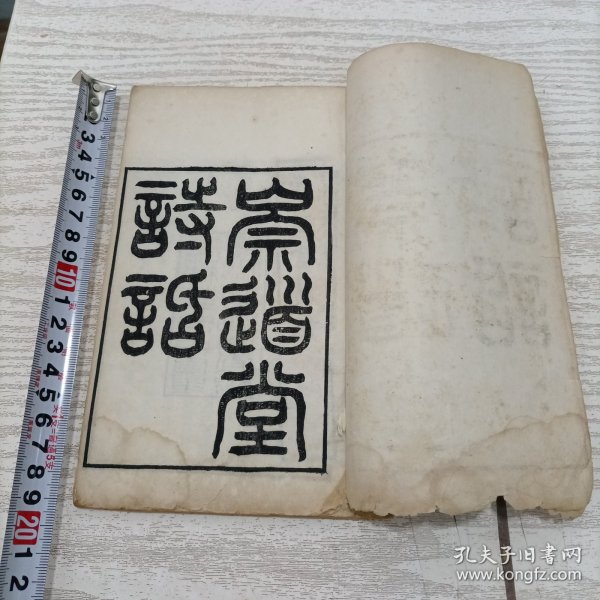 崇道堂
詩話
3
4
5
6
7
8
9
10
1
2
3
4
5
6
7
8
9
20
1
2
孔夫子旧书网
www.kongfz.com